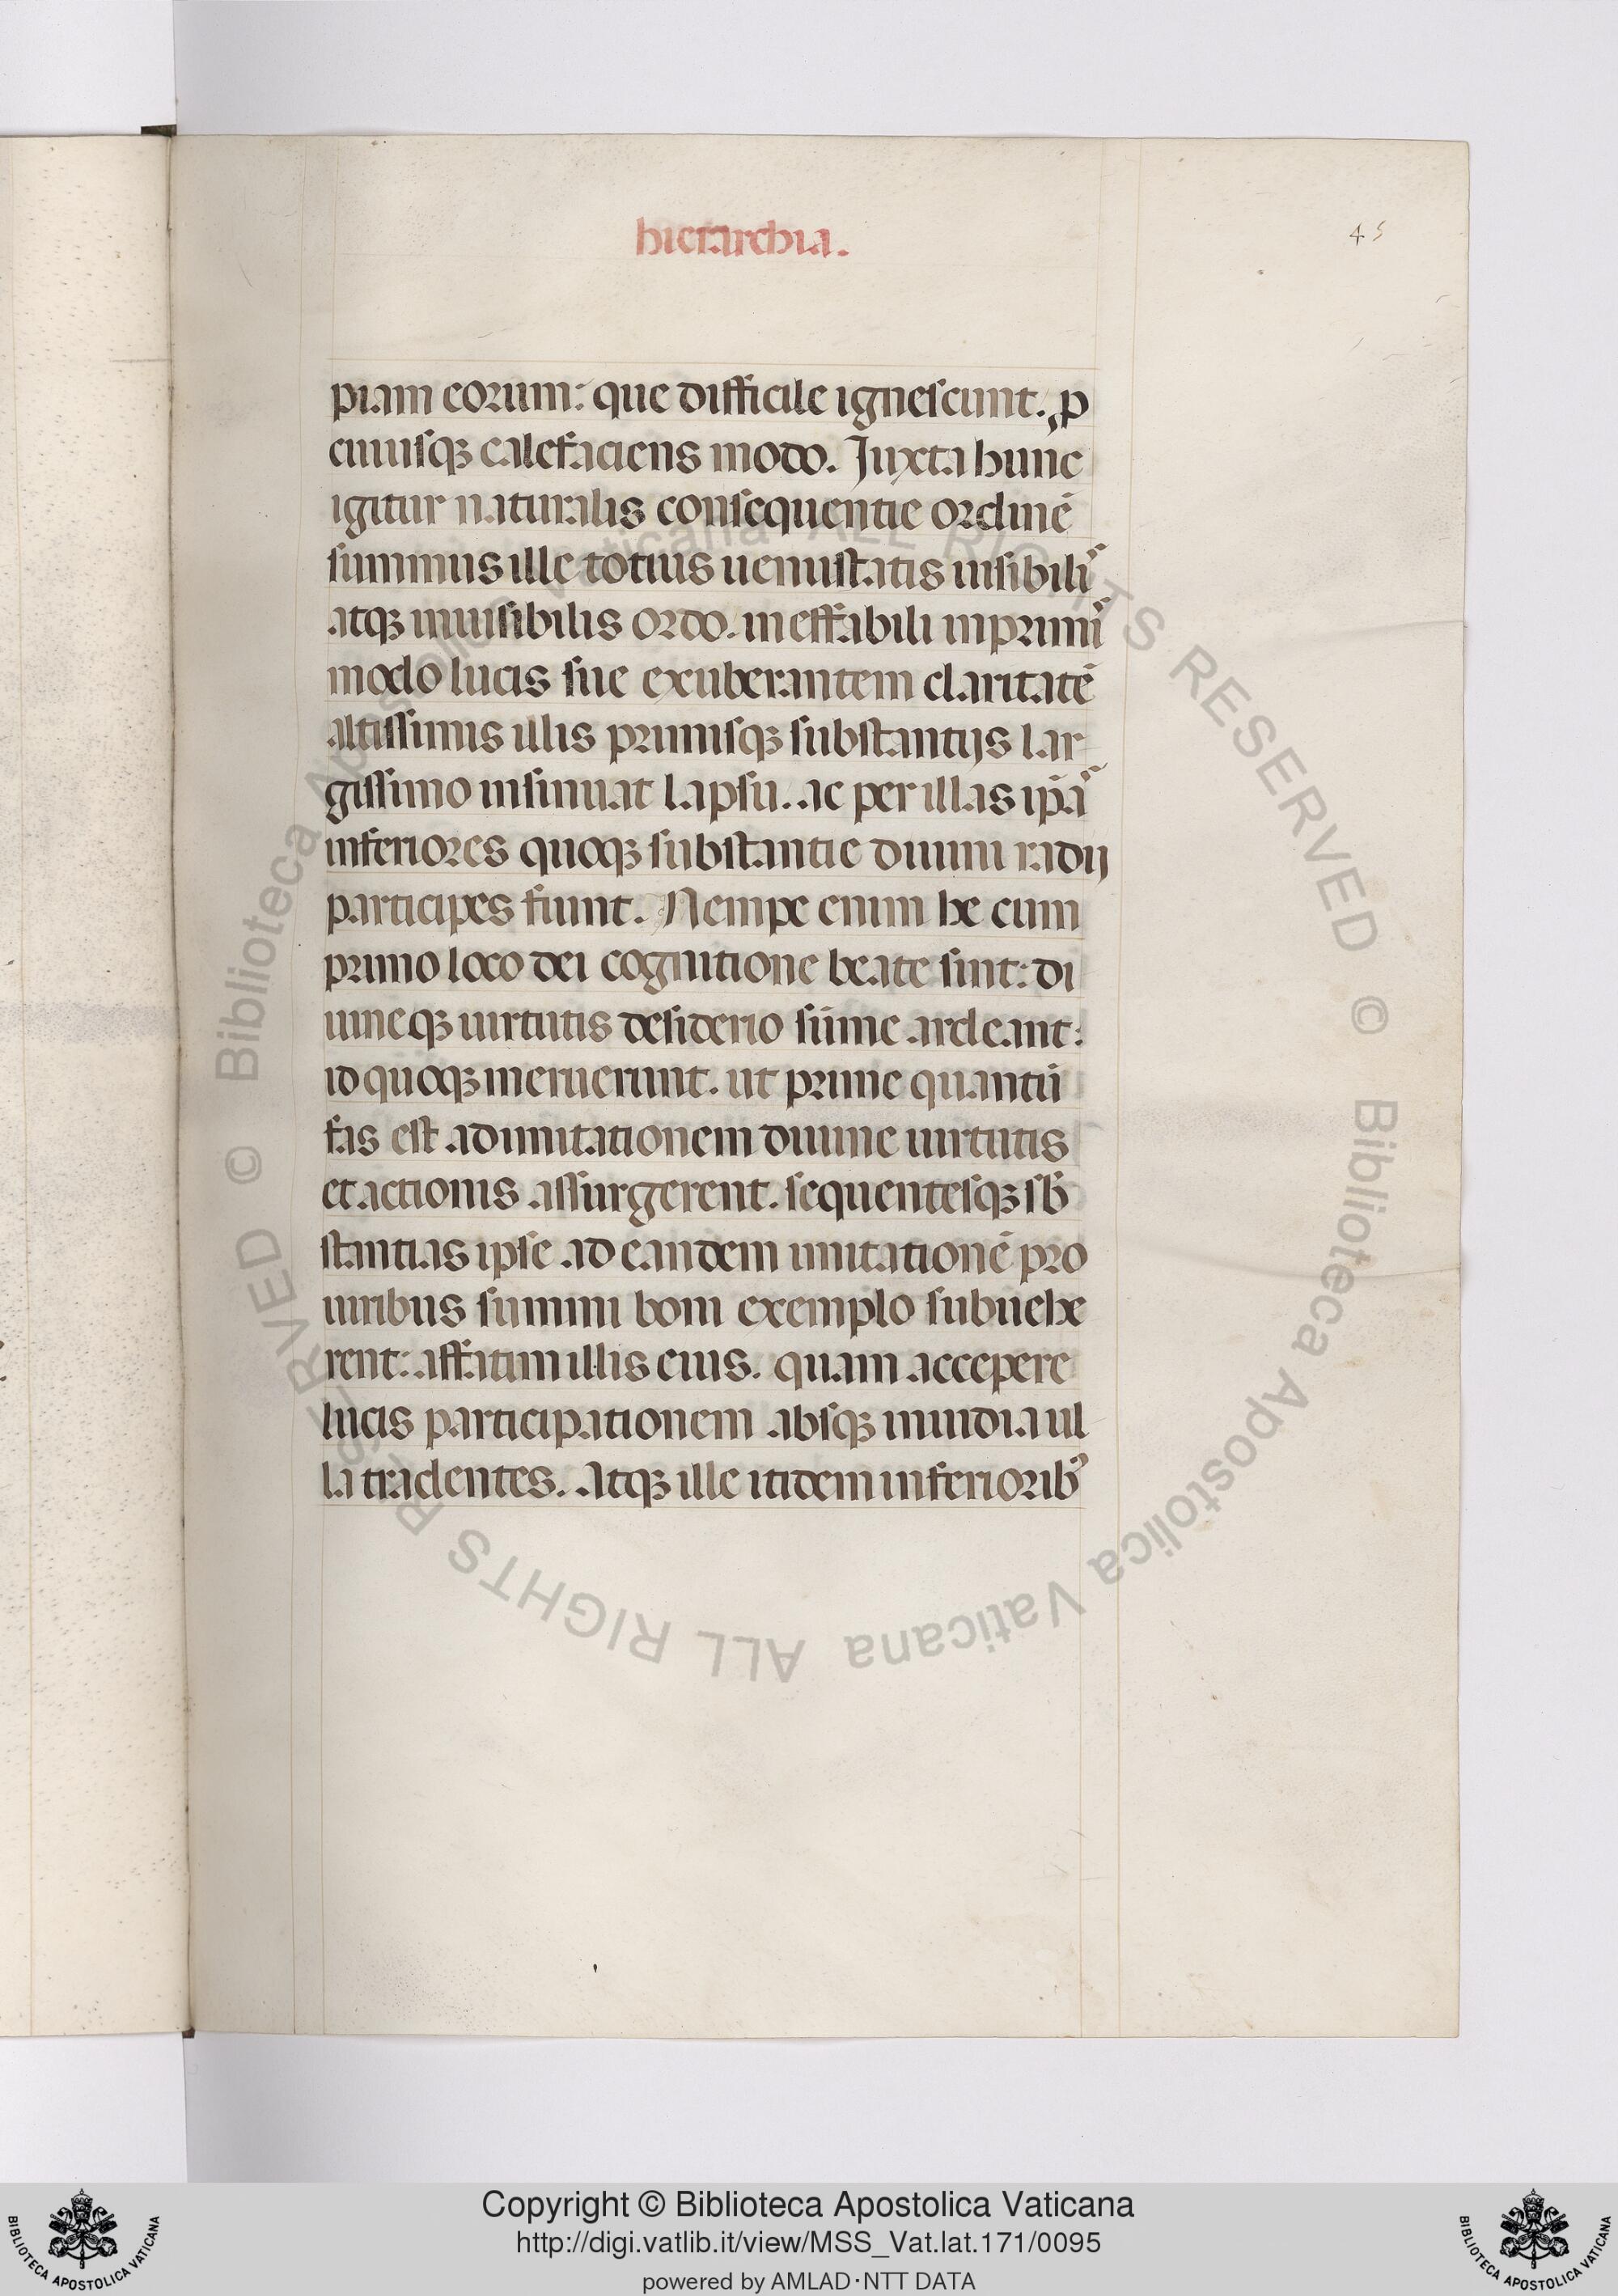 hierarchia.
45
piam eorum: que difficile ignescunt. ꝓ
cuiusqꝫ calefaciens modo. Juxta hunc
igitur naturalis consequentie ordinē
summus ille totius uenustatis uisibili᷒
atqꝫ inuisibilis ordo. ineffabili inprimi᷒
modo lucis sue exuberantem claritatē
altissimis illis primisqꝫ substantijs lar
gissimo insinuat lapsu. ac per illas ip̄a᷒
inferiores quoqꝫ substantie diuini radij
participes fiunt. Nempe enim he cum
primo loco dei cognitione beate sint: di
uineqꝫ uirtutis desiderio sūme ardeant:
id quoqꝫ meruerunt. ut prime quantū
fas est ad imitationem diuine uirtutis
et actionis assurgerent. sequentesqꝫ sb̄
stantias ipse ad eandem imitationē pro
uiribus summi boni exemplo subuehe
rent: affatim illis eius. quam accepere
lucis participationem absqꝫ inuidia ul
la tradentes. Atqꝫ ille itidem inferiorib᷒
Copyright © Biblioteca Apostolica Vaticana
http://digi.vatlib.it/view/MSS_Vat.lat.171/0095
powered by AMLAD·NTT DATA
BIBLIOTECA APOSTOLICA VATICANA
BIBLIOTECA APOSTOLICA VATICANA
© Biblioteca Apostolica Vaticana ALL RIGHTS RESERVED
© Biblioteca Apostolica Vaticana ALL RIGHTS RESERVED